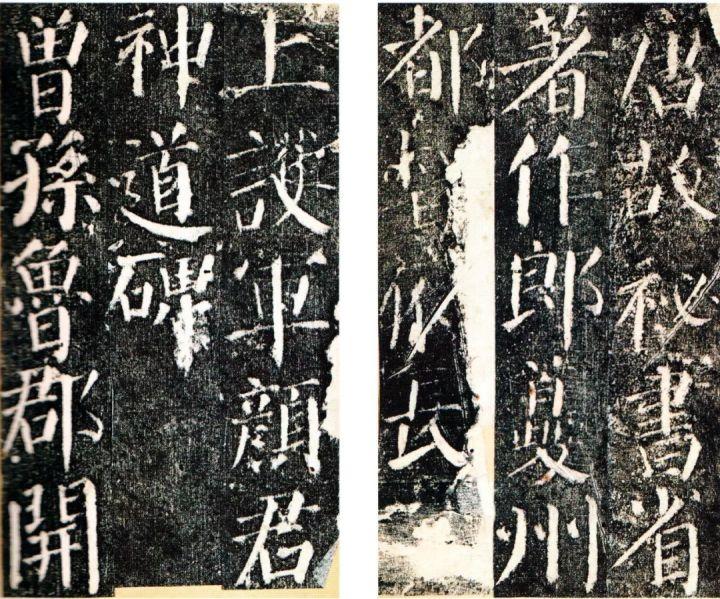 唐故秘書省
著作郎夔州
都長
上護軍顏君
神道碑
曾孫魯郡開